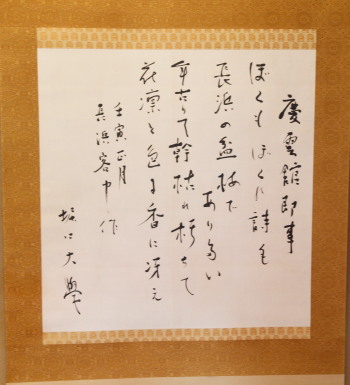 慶雲館即事
ぼくも ぼくの詩も
長浜の盆梅で
ありたい
年古りて幹枯れ朽ちて
花凛と色に香に冴え
壬寅正月
長浜客中作
堀口大學